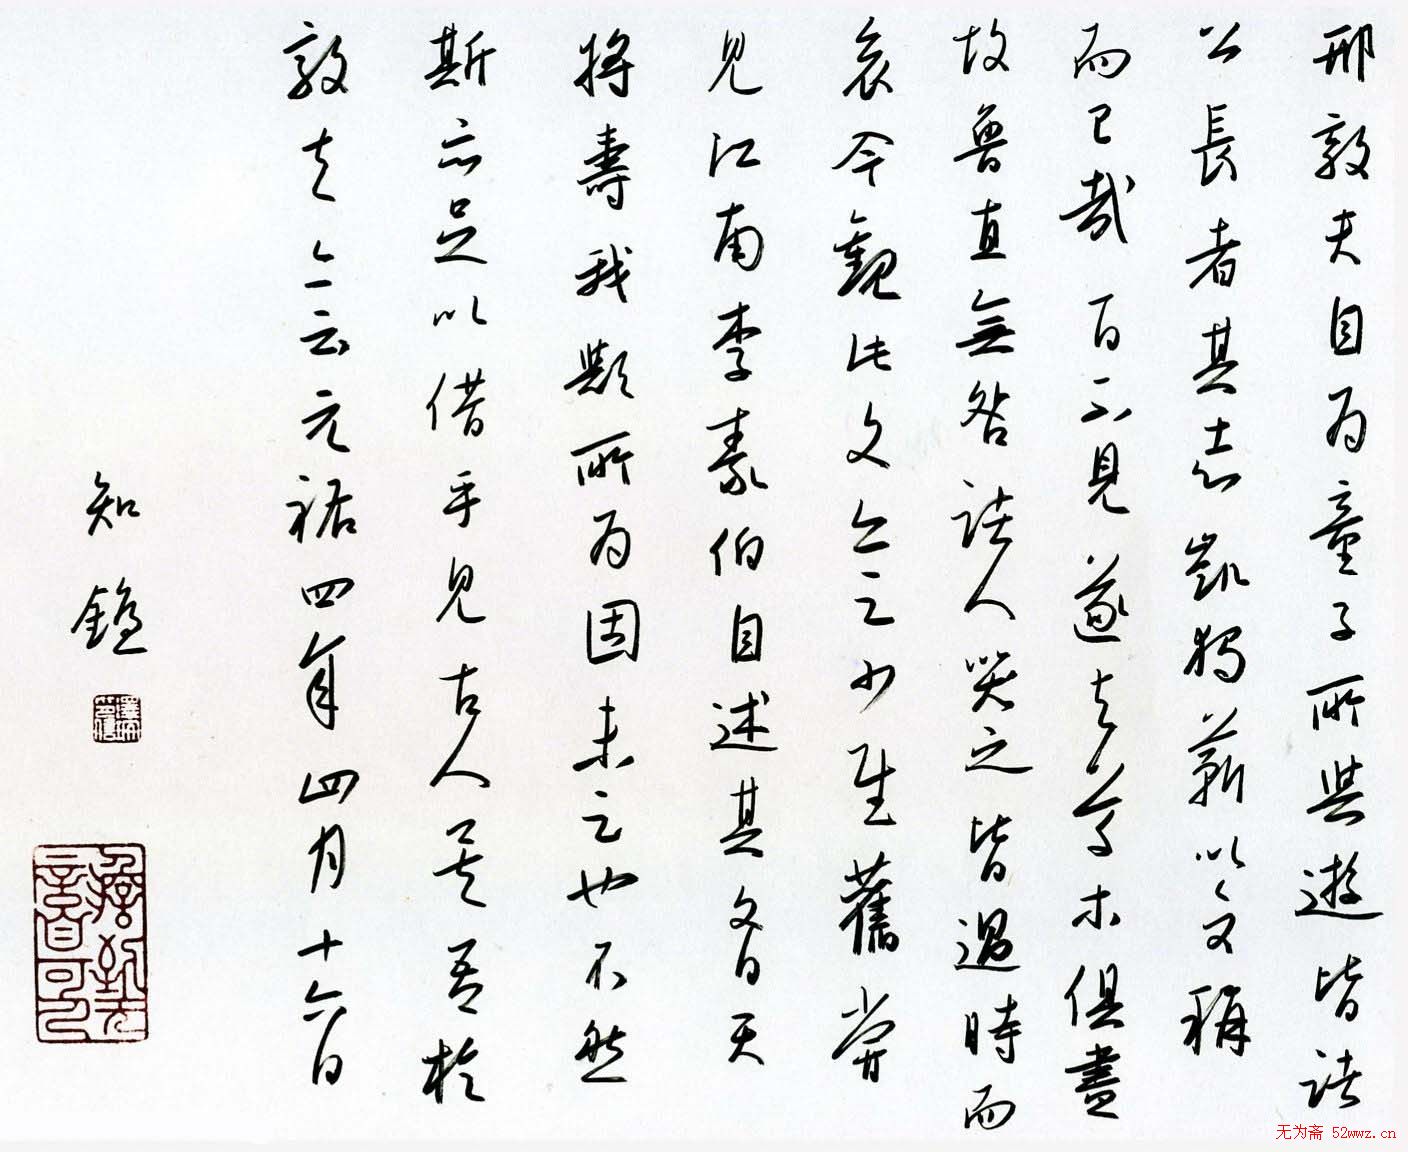 邢敦夫自为童子所与遊皆諸
公長者其志凱獨蘄以文稱
而已哉百不見遂与草木俱盡
故魯直無咎諸人哭之皆過時而
哀今觀此文亦之少作舊嘗
見江南李泰伯自述其文曰天
將壽我歟所为固未足也不然
斯亦足以借手見古人矣吾於
敦夫亦云元祐四年四月十六日
知鐙
无为斋 52wwz.cn